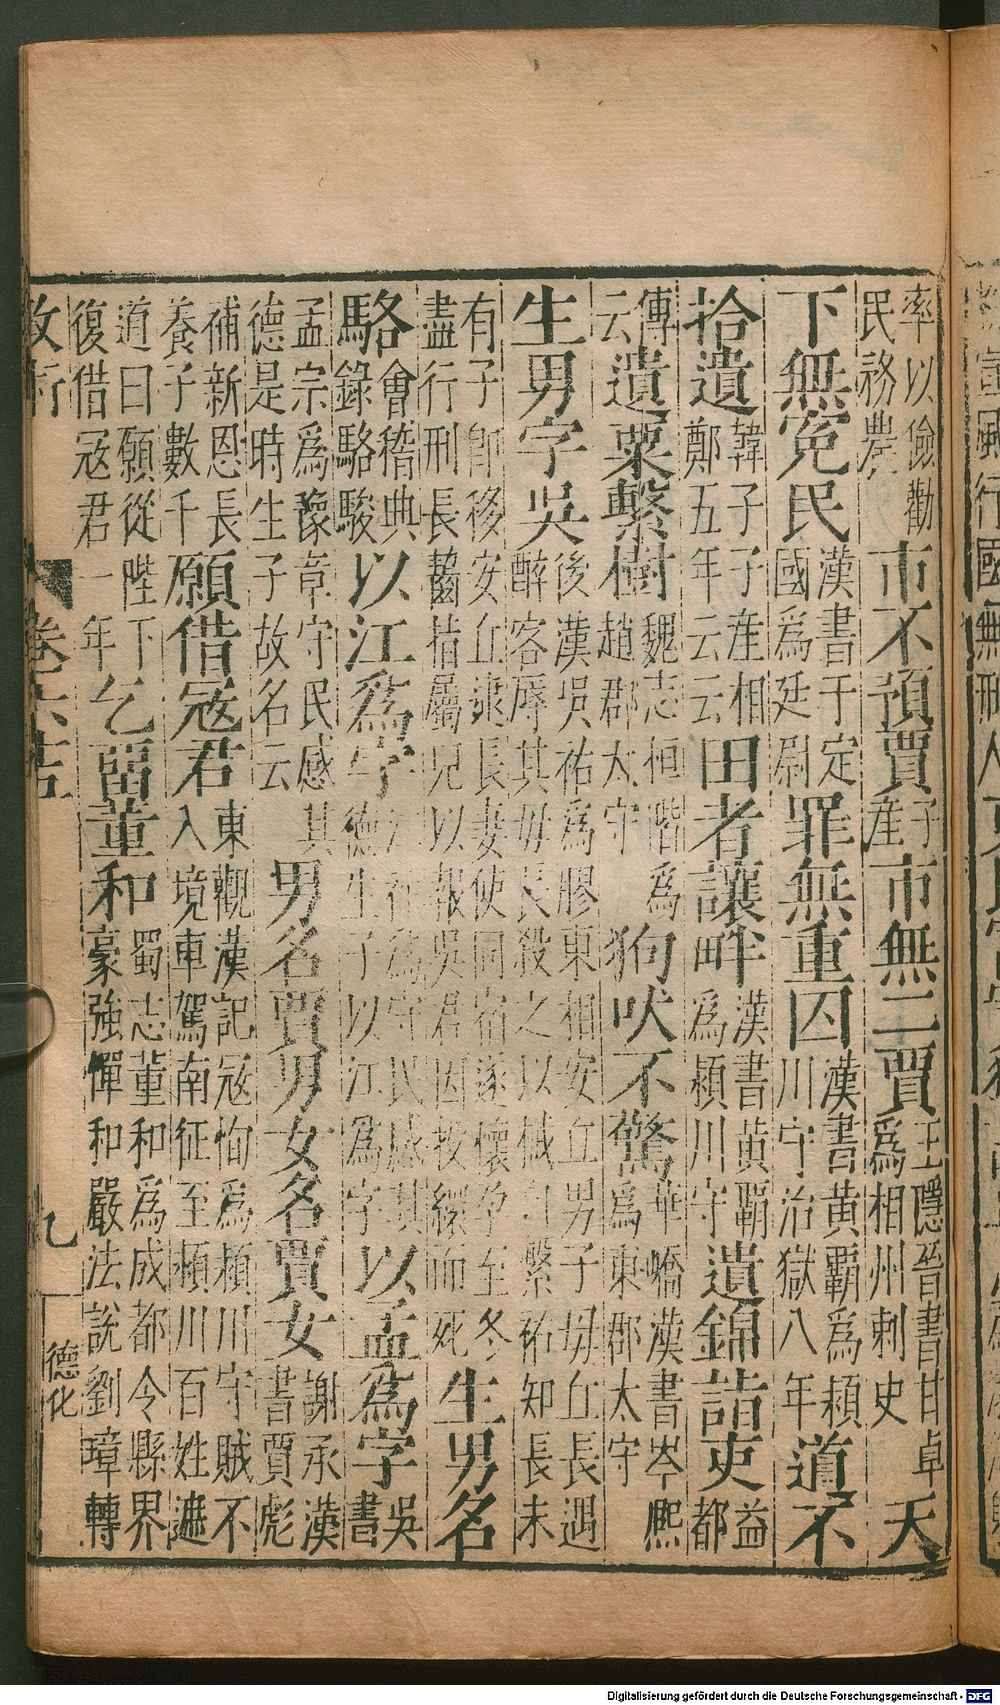 率以儉勸民務農市不預賈子產市無二賈王隱晉書甘卓為相州刺史天
下無冤民漢書于定國為廷尉罪無重囚漢書黃霸為潁川守治獄八年道不
拾遺韓子子產相鄭五年云云田者讓畔漢書黃霸為潁川守遺錦詣吏益都
傳云遺粟繫樹魏志恒階為趙郡太守狗吠不驚華嶠漢書岑熈為東郡太守
生男字吳後漢吳祐為膠東相安丘男子毋丘長遇醉客辱其母長殺之以械自繫祐知長未
有子即移安丘逮長妻使同宿遂懷孕至冬盡行刑長齧指屬兒以報吳君因投繯而死生男名
駱會稽典錄駱駿以江為字江祚為守民感其德生子以江為字以孟為字吳書
孟宗為豫章守民感其德是時生子故名云男名賈男女名賈女謝承漢書賈彪
補新恩長養子數千願借寇君東觀漢記寇恂為潁川守賊不入境車駕南征至潁川百姓遮
道曰願從陛下復借寇君一年乞畱董和蜀志董和為成都令縣界豪強憚和嚴法說劉璋轉
政術 卷六古 九 德化
Digitalisierung gefördert durch die Deutsche Forschungsgemeinschaft - DFG